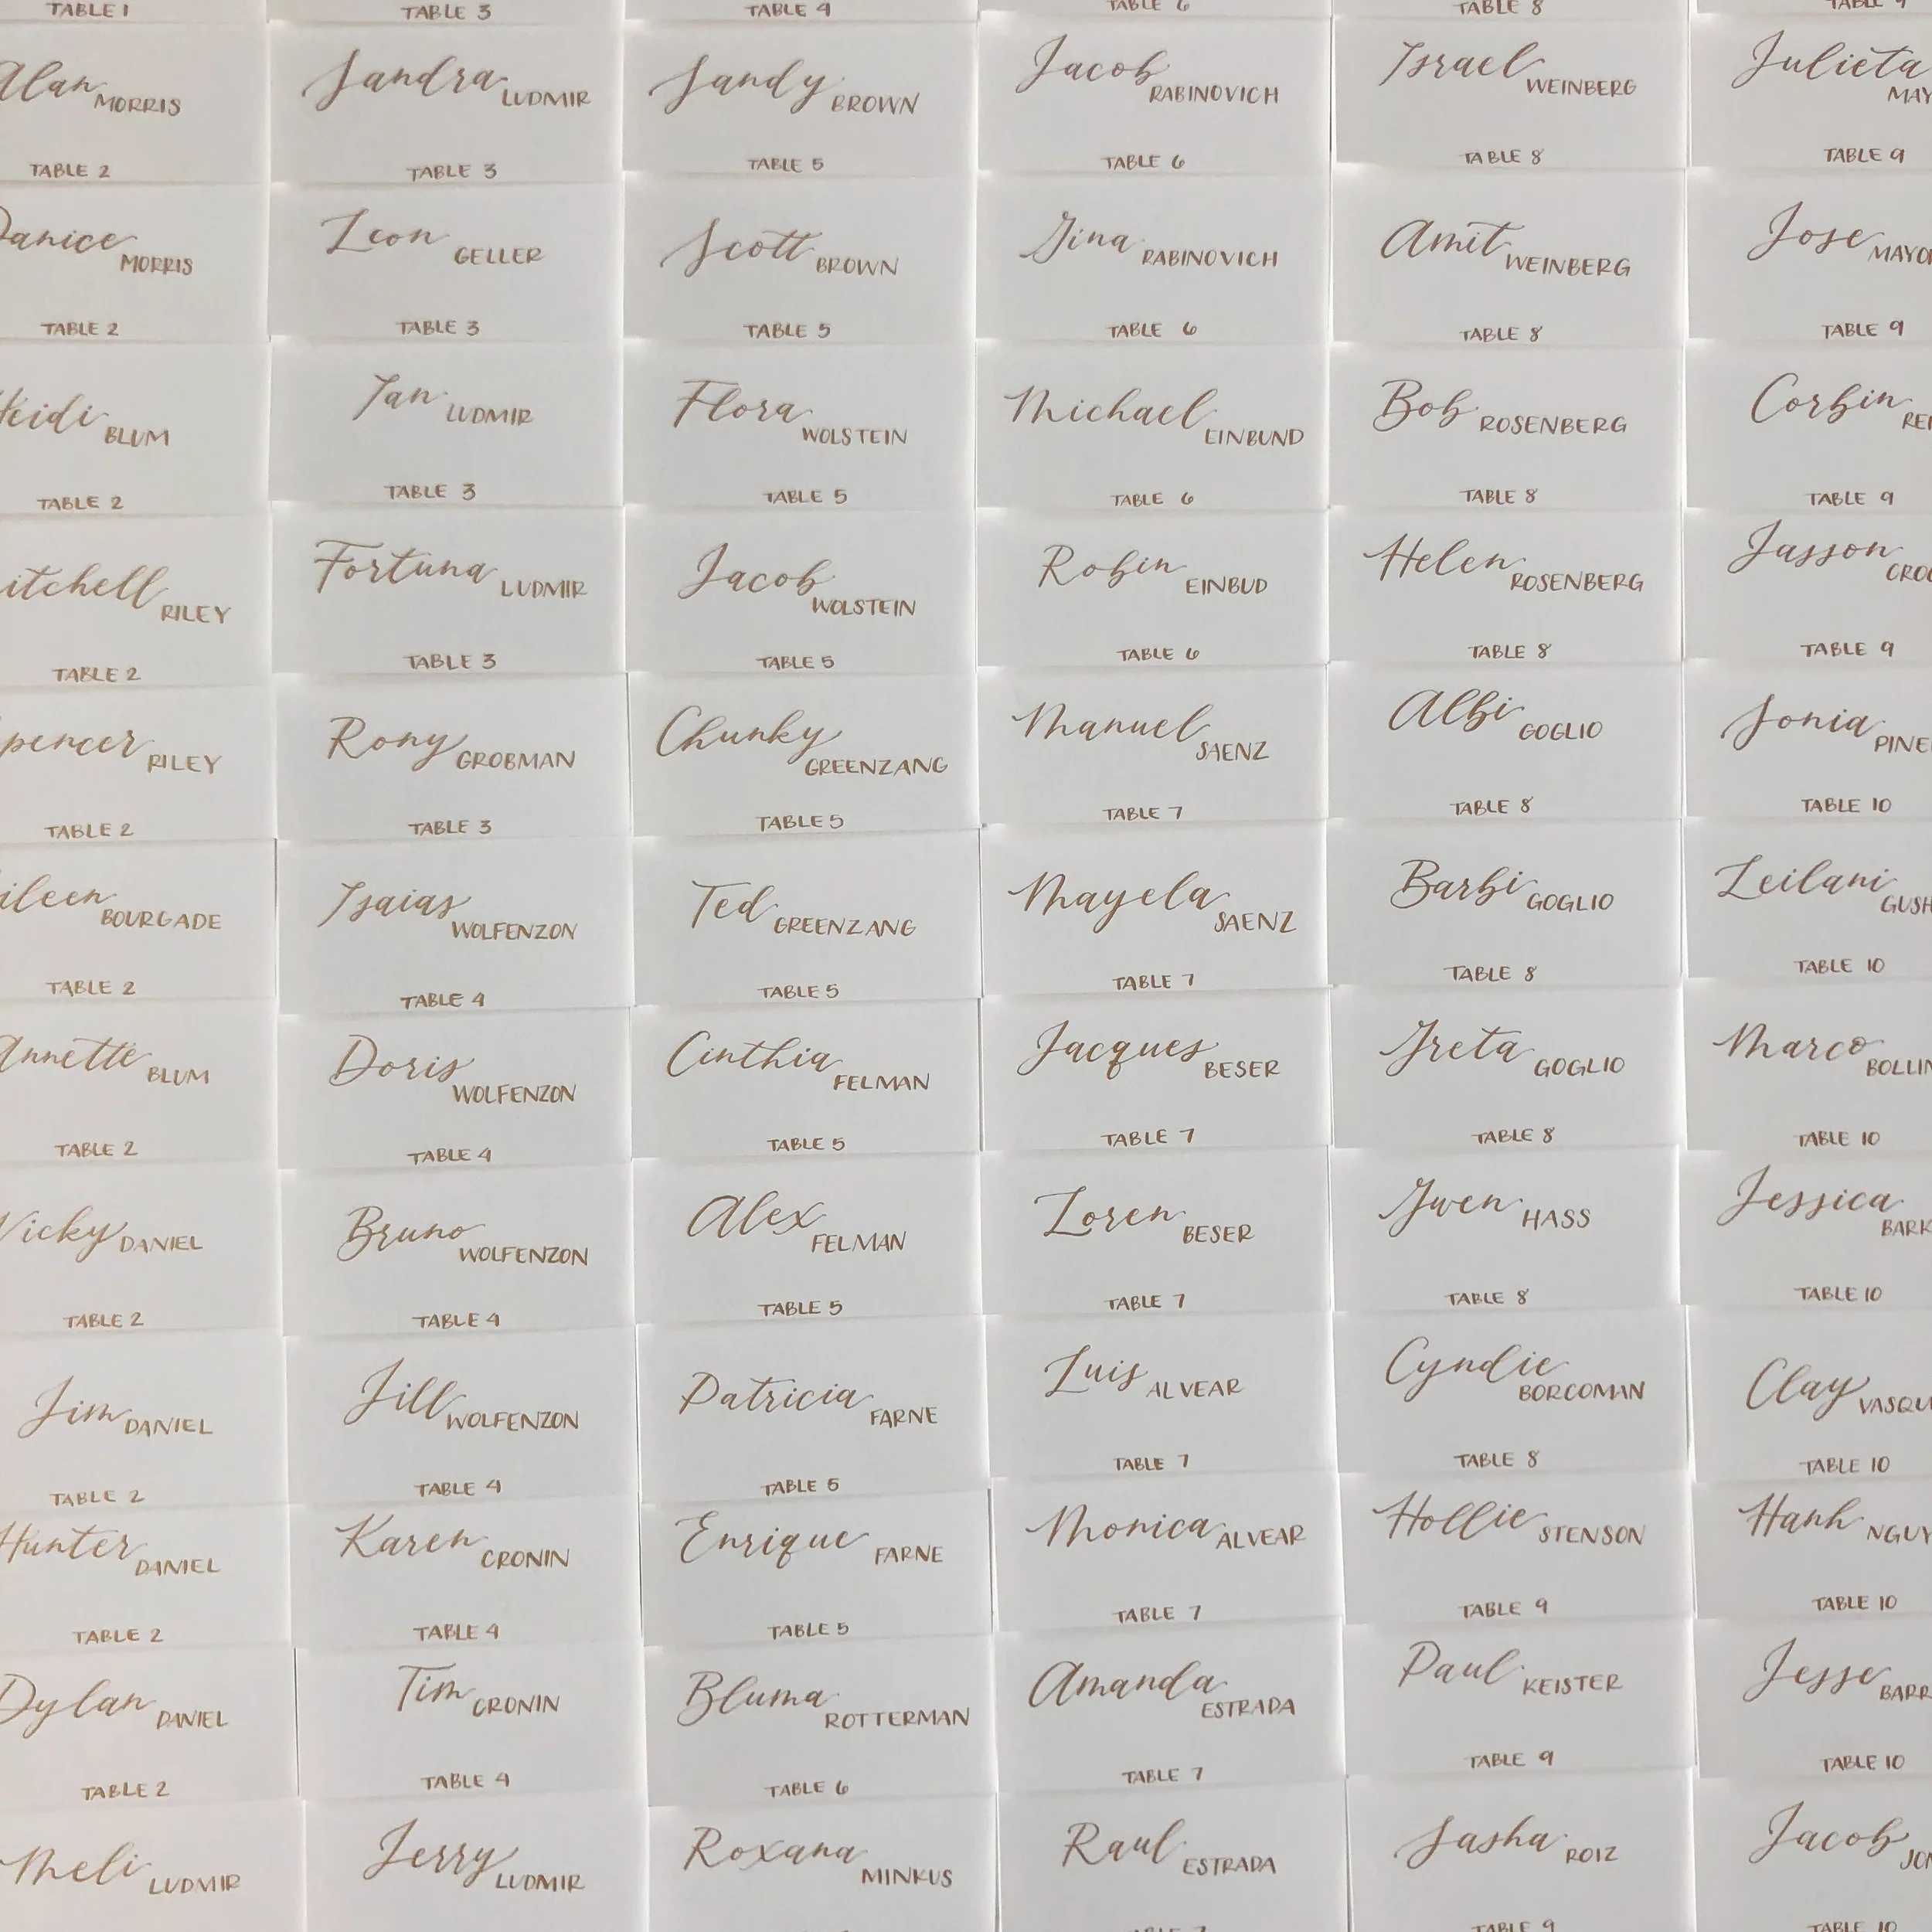 TABLE 1
Alan MORRIS
TABLE 2
MORRIS
TABLE 2
Heidi BLUM
TABLE 2
itchell RILEY
TABLE 2
pencer RILEY
TABLE 2
ileen BOURGADE
TABLE 2
Annette BLUM
TABLE 2
Vicky DANIEL
TABLE 2
Jim DANIEL
TABLE 2
Hunter DANIEL
TABLE 2
Dylan DANIEL
TABLE 2
Meli LUDMIR
TABLE 3
Sandra LUDMIR
TABLE 3
Leon GELLER
TABLE 3
Ian LUDMIR
TABLE 3
Fortuna LUDMIR
TABLE 3
Rony GROBMAN
TABLE 3
Isaias WOLFENZON
TABLE 4
Doris WOLFENZON
TABLE 4
Bruno WOLFENZON
TABLE 4
Jill WOLFENZON
TABLE 4
Karen CRONIN
TABLE 4
Tim CRONIN
TABLE 4
Jerry LUDMIR
TABLE 4
Sandy BROWN
TABLE 5
Scott BROWN
TABLE 5
Flora WOLSTEIN
TABLE 5
Jacob WOLSTEIN
TABLE 5
Chunky GREENZANG
TABLE 5
Ted GREENZANG
TABLE 5
Cinthia FELMAN
TABLE 5
Alex FELMAN
TABLE 5
Patricia FARNE
TABLE 5
Enrique FARNE
TABLE 5
Bluma ROTTERMAN
TABLE 6
Roxana MINKUS
TABLE 6
Jacob RABINOVICH
TABLE 6
Gina RABINOVICH
TABLE 6
Michael EINBUND
TABLE 6
Robin EINBUD
TABLE 6
Manuel SAENZ
TABLE 7
Mayela SAENZ
TABLE 7
Jacques BESER
TABLE 7
Loren BESER
TABLE 7
Luis ALVEAR
TABLE 7
Monica ALVEAR
TABLE 7
Amanda ESTRADA
TABLE 7
Raul ESTRADA
TABLE 7
TABLE 8
Israel WEINBERG
TABLE 8
Amit WEINBERG
TABLE 8
Bob ROSENBERG
TABLE 8
Helen ROSENBERG
TABLE 8
Albi GOGLIO
TABLE 8
Barbi GOGLIO
TABLE 8
Greta GOGLIO
TABLE 8
Gwen HASS
TABLE 8
Cyndie BORCOMAN
TABLE 8
Hollie STENSON
TABLE 9
Paul KEISTER
TABLE 9
Sasha ROIZ
TABLE 9
TABLE 9
Julieta MAY
TABLE 9
Jose MAYO
TABLE 9
Corbin
TABLE 9
Jasson CRO
TABLE 9
Sonia PINE
TABLE 10
Leilani GUSH
TABLE 10
Marco BOLLIN
TABLE 10
Jessica BARK
TABLE 10
Clay VASQU
TABLE 10
Hanh NGUY
TABLE 10
Jesse BARR
TABLE 10
Jacob
TABLE 10